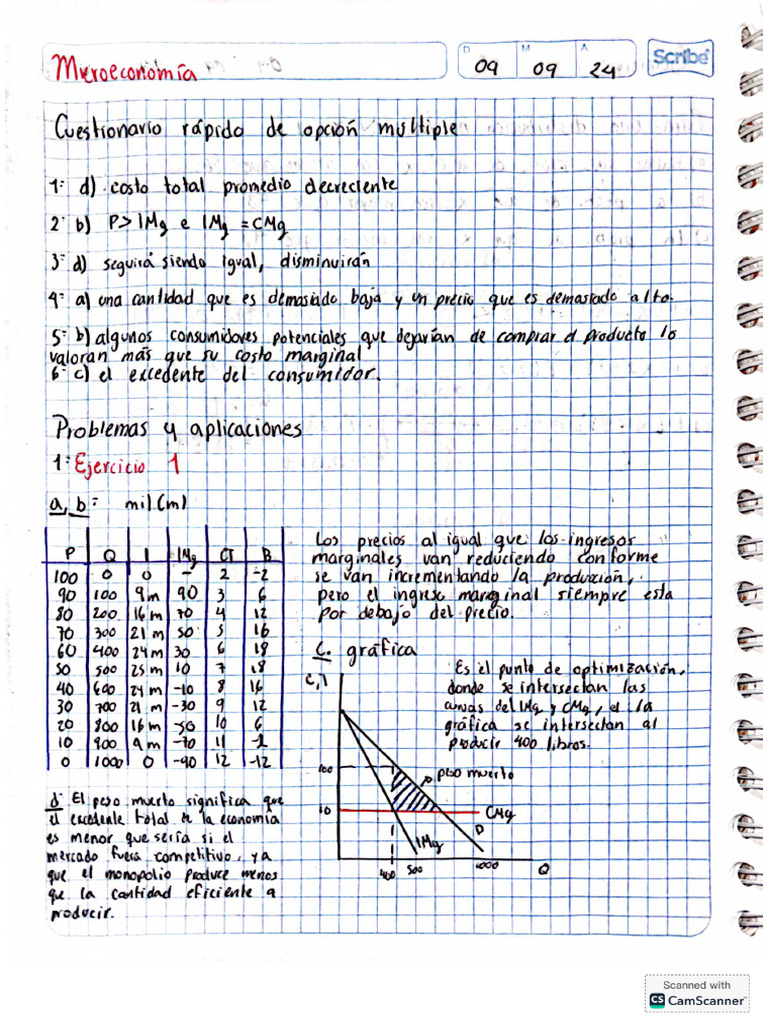 Microeconomía
D M A
09 09 24
Scribe
Cuestionario rápido de opción multiple
1= d) costo total promedio decreciente
2= b) P>IMg e IMg = CMg
3= d) seguirá siendo igual, disminuirán
4= a) una cantidad que es demasiado baja y un precio que es demasiado alto.
5= b) algunos consumidores potenciales que dejarían de comprar el producto lo
valoran más que su costo marginal
6= c) el excedente del consumidor.
Problemas y aplicaciones
1= Ejercicio 1
a, b= mil (m)
P Q I IMg CT B
100 0 0 - 2 -2
90 100 9m 90 3 6
80 200 16m 70 4 12
70 300 21m 50 5 16
60 400 24m 30 6 18
50 500 25m 10 7 18
40 600 24m -10 8 16
30 700 21m -30 9 12
20 800 16m -50 10 6
10 900 9m -70 11 -2
0 1000 0 -90 12 -12
Los precios al igual que los ingresos
marginales van reduciendo conforme
se van incrementando la producción,
pero el ingreso marginal siempre esta
por debajo del precio.
c. gráfica
Es el punto de optimización,
donde se intersectan las
curvas del IMg y CMg, el la
gráfica se intersectan al
producir 400 libros.
C,I
100
peso muerto
10
CMg
D
IMg
400 500 1000 Q
d= El peso muerto significa que
el excedente total de la economía
es menor que sería si el
mercado fuera competitivo, ya
que el monopolio produce menos
que la cantidad eficiente a
producir.
Scanned with
CS CamScanner